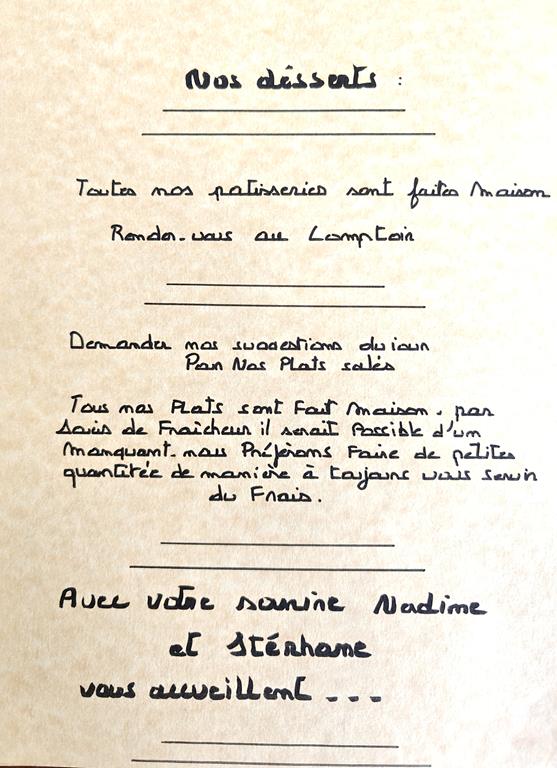 Nos désserts :
Toutes nos patisseries sont faites Maison
Rendez-vous au Comptoir
Demander nos suggestions du jour
Pour Nos Plats salés
Tous nos Plats sont Fait Maison. par
Soucis de Fraîcheur il serait Possible d'un
Manquant. nous Préférons Faire de petites
quantitée de manière à toujours vous servir
du Frais.
Avec votre sourire Nadine
et Stéphane
vous accueillent ...